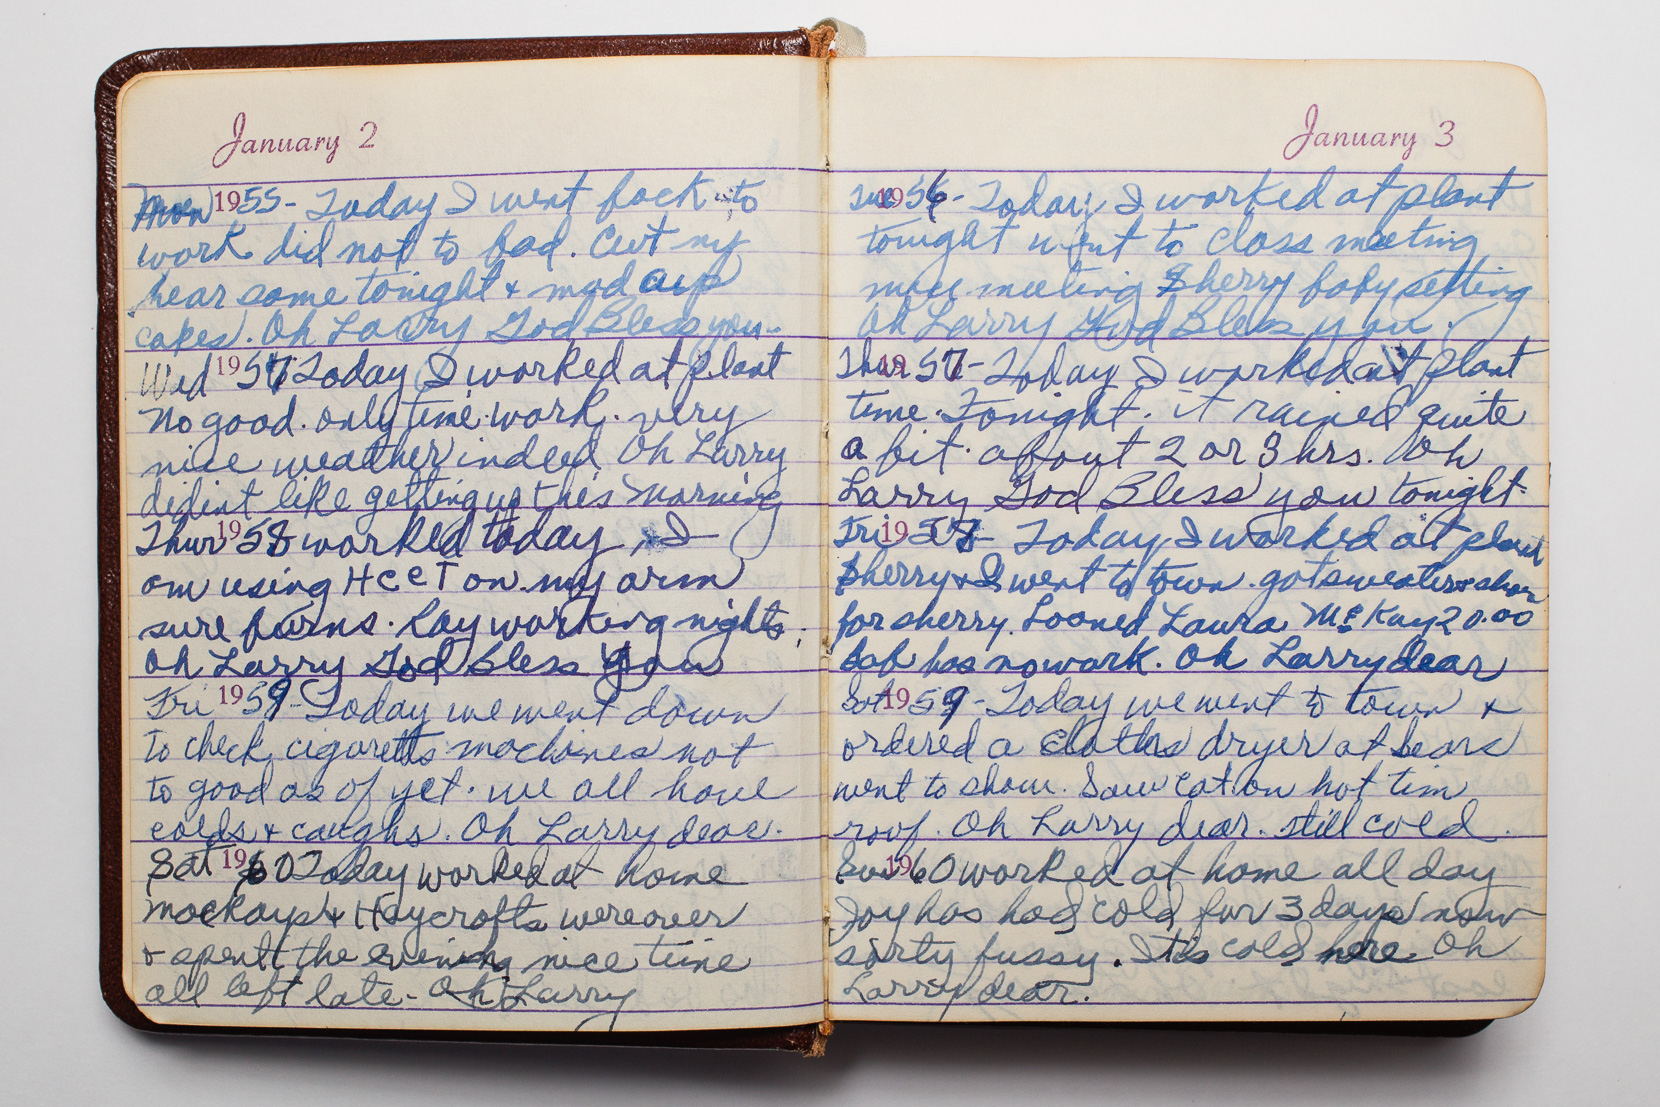 January 2
Mon 1955- Today I went back to
work did not to bad. Cut my
hear some tonight & mad cup
cakes. Oh Larry God Bless you-
Wed 1957 Today I worked at plant
No good. only time work. very
nice weather indeed Oh Larry
didint like getting up this morning
Thur 1958 worked today, I
am using HCCT on my arm
sure burns. Ray working nights.
Oh Larry God Bless you
Fri 1959- Today we went down
to check cigaretts machines not
to good as of yet. we all have
colds & caughs. Oh Larry dear.
Sat 1960 Today worked at home
Mackays & Haycrofts were over
& spent the evening nice time
all left late- Oh Larry
January 3
Tue 1956- Today I worked at plant
tonight went to class meeting
nice meeting Sherry baby setting
Oh Larry God Bless you.
Thur 1957- Today I worked at plant
time. Tonight. it rained quite
a bit. about 2 or 3 hrs. Oh
Larry God Bless you tonight.
Fri 1958- Today I worked at plant
Sherry & I went to town. got sweater &
for sherry. Looned Laura McKay 20.00
bob has no work. Oh Larry dear
Sat 1959- Today we went to town &
ordered a cloths dryer at Sears
went to show. Saw cat on hot tim
roof. Oh Larry dear. still cold.
Sun 1960 worked at home all day
Joy has had cold fur 3 days now
sorty fussy. It's cold here. Oh
Larry dear.